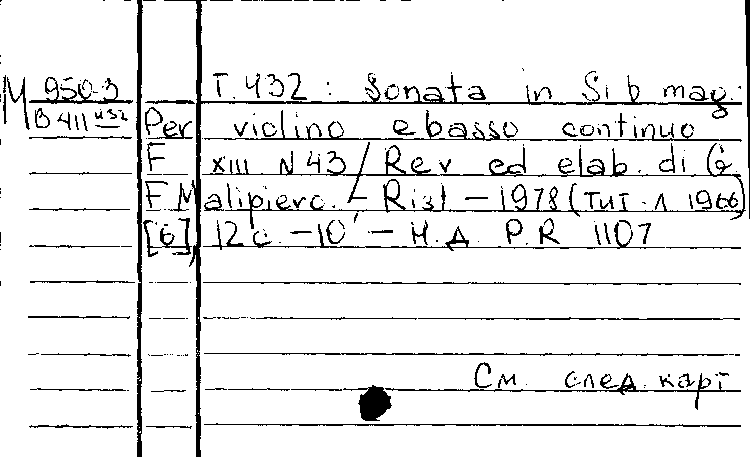 М 950-3 T. 432: Sonata in Si b mag.
B 411 432 Per violino e basso continuo
F XIII N 43 / Rev ed elab. di G.
F Malipiero. – Rist – 1978 (тит. л 1966)
[6], 12 c. – 10' – Н.Д. P.R 1107
См след. карт